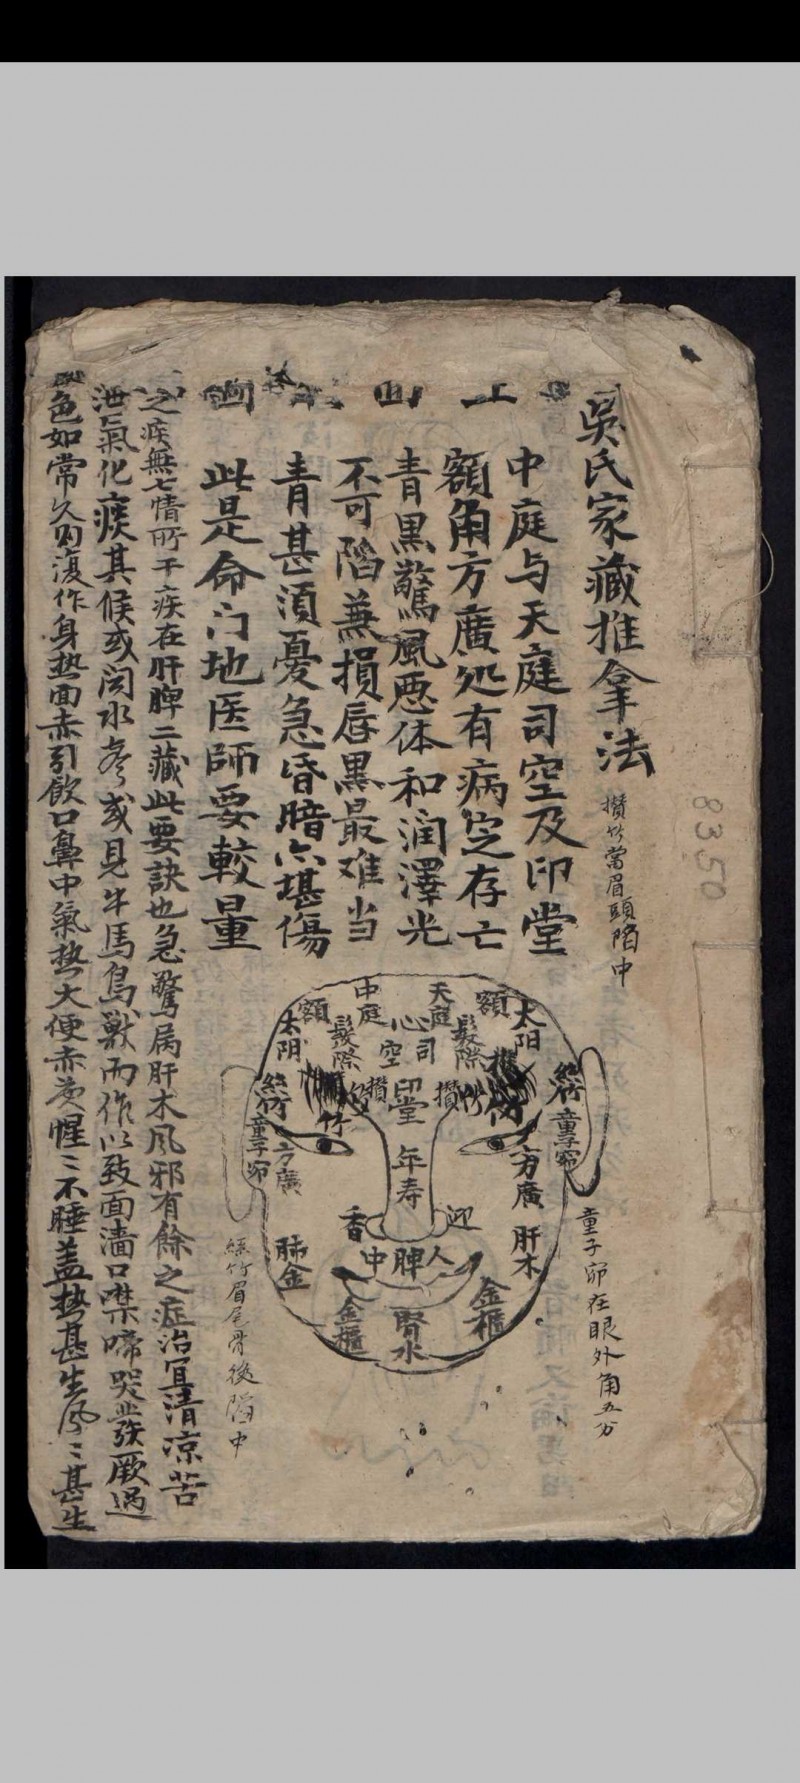 吳氏家藏推拿法
攅竹當眉頭陷中
中庭与天庭司空及印堂
額角方廣処有病定存亡
青黒驚風悪体和润澤光
不可陷兼損唇黒最难当
青甚湏憂急昏暗亦堪傷
此是命门地医師要較量
上
面
圖
太阳
額
天庭
中庭
額
太阴
髮際
心
司空
髮際
印堂
攅竹
攅竹
絲竹
童子窌
絲竹
童子窌
方廣
方廣
年寿
迎
香
肝木
肺金
人中
脾
金櫃
金櫃
腎水
童子窌在眼外角五分
絲竹眉尾骨後陷中
之疾無七情所干疾在肝脾二藏此要訣也急驚属肝木风邪有餘之症治宜清凉苦
泄氣化痰其候或闻水声或見牛馬鳥獣而作以致面濇口噤啼哭並發厥過
色如常久因復作身热面赤引飲口鼻中氣热大便赤黄惺〻不睡盖热甚生风〻甚生
8350